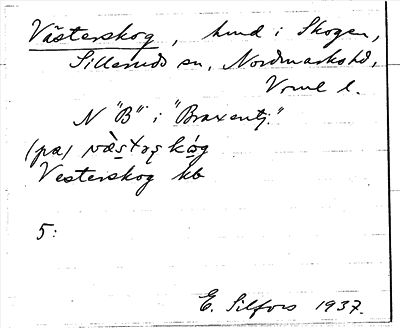 Västerskog, hmd i Skogen,
Silleruds sn, Nordmarks hd,
Vrml l.
N "B" i "Braxentj."
(pa) væ̀stəʂkóg
Vesterskog kb
5:
E. Silfors 1937.